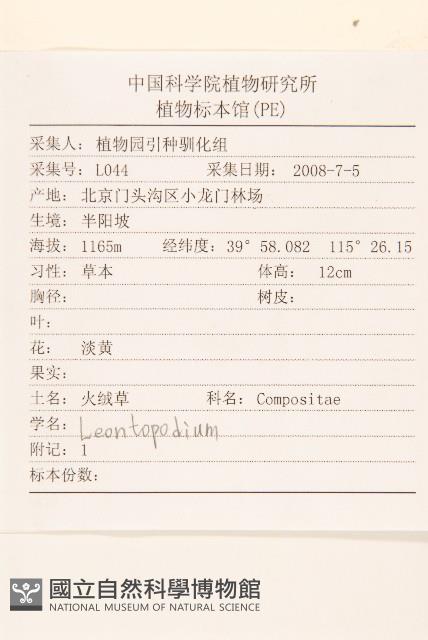 中国科学院植物研究所
植物标本馆(PE)
采集人: 植物园引种驯化组
采集号: L044 采集日期: 2008-7-5
产地: 北京门头沟区小龙门林场
生境: 半阳坡
海拔: 1165m 经纬度: 39° 58.082 115° 26.15
习性: 草本 体高: 12cm
胸径: 树皮:
叶:
花: 淡黄
果实:
土名: 火绒草 科名: Compositae
学名: Leontopodium
附记: 1
标本份数:
國立自然科學博物館
NATIONAL MUSEUM OF NATURAL SCIENCE